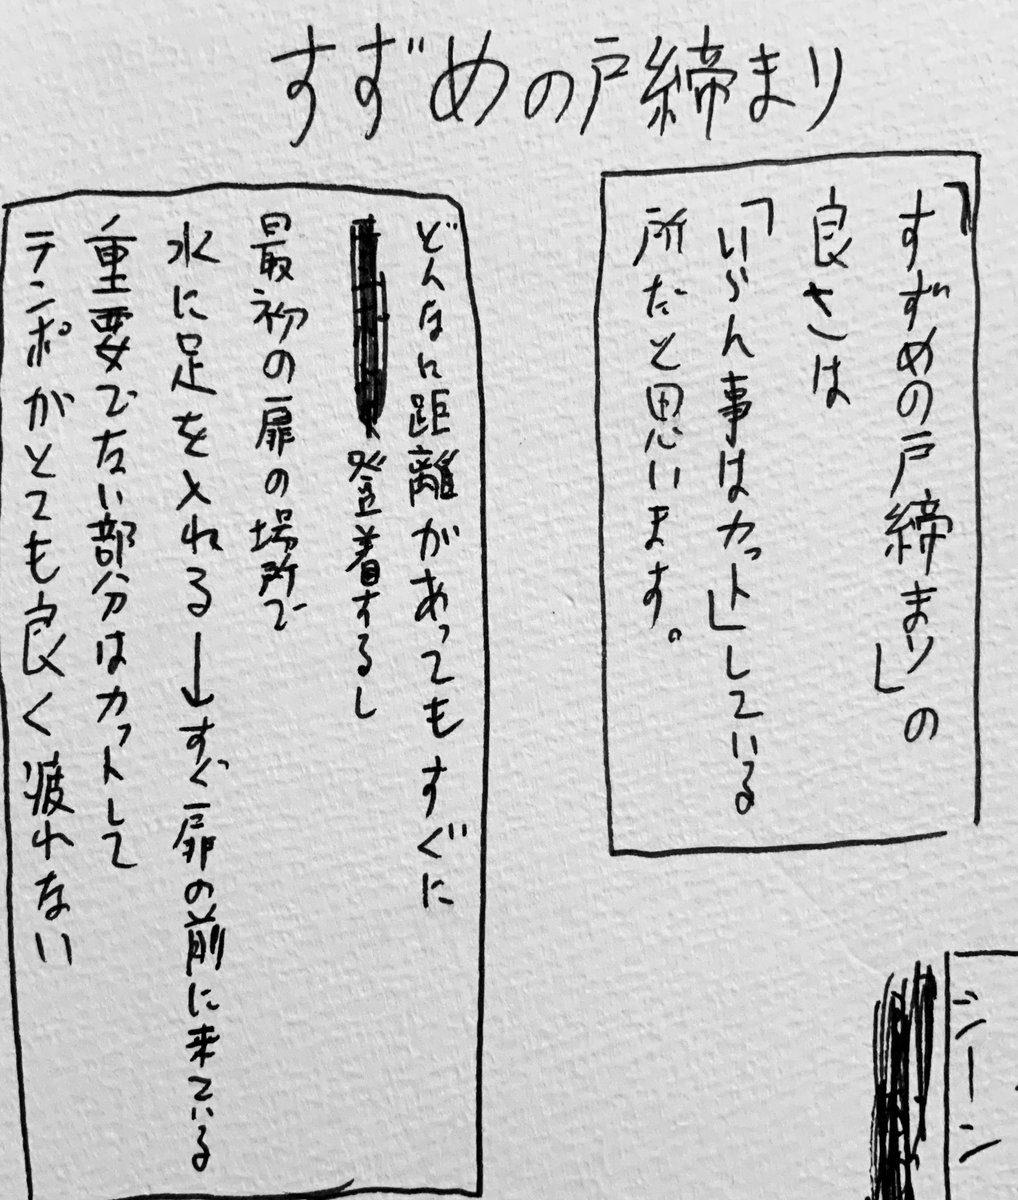 すずめの戸締まり
「すずめの戸締まり」の
良さは
「いらん事はカット」している
所だと思います。
どんなに距離があってもすぐに
登着するし
最初の扉の場所で
水に足を入れる→すぐ扉の前に来ている
重要でない部分はカットして
テンポがとても良く疲れない
ジーン